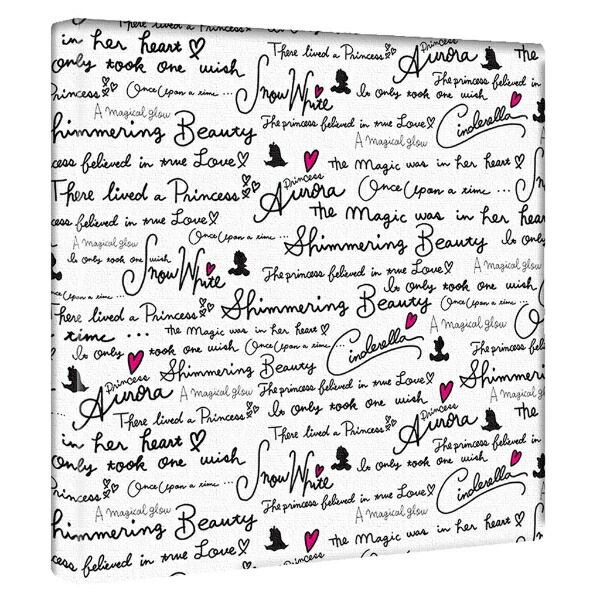 in her heart There lived a Princess Princess Aurora
only took one wish The princess believed in
Princess Once Upon a time ... Snow White Is only took one wish
A magical glow
Shimmering Beauty The princess believed in true Love Cinderella
A magical glow
princess believed in true Love the Magic was in her heart
There lived a Princess Princess Aurora Once Upon a time ...
the Magic was in her hear
princess believed in true Love
A magical glow Once Upon a time ... Shimmering Beauty Is only took
Is only took one wish Snow White The princess believed in true Love A magical glow
Once Upon a time ... Is only took one wish
There lived a Princess Shimmering Beauty Once Upon a time ...
time ... the Magic was in her heart Cinderella A magical glow
Is only took one wish Once Upon a time ... The princess believed in
Princess Aurora Shimmering Beauty There lived a Princess Shimmering
A magical glow The princess believed in true Love A magical glow
There lived a Princess Is only took one wish Princess Aurora the
in her heart There lived a Princess The princess believed in
only took one wish Snow White Is only took one wish
Princess Once Upon a time ... The princess believed in true Love Cinderella
A magical glow A magical glow
Shimmering Beauty There lived a Princess the Magic was in her heart
princess believed in true Love Princess Once Upon a time ...